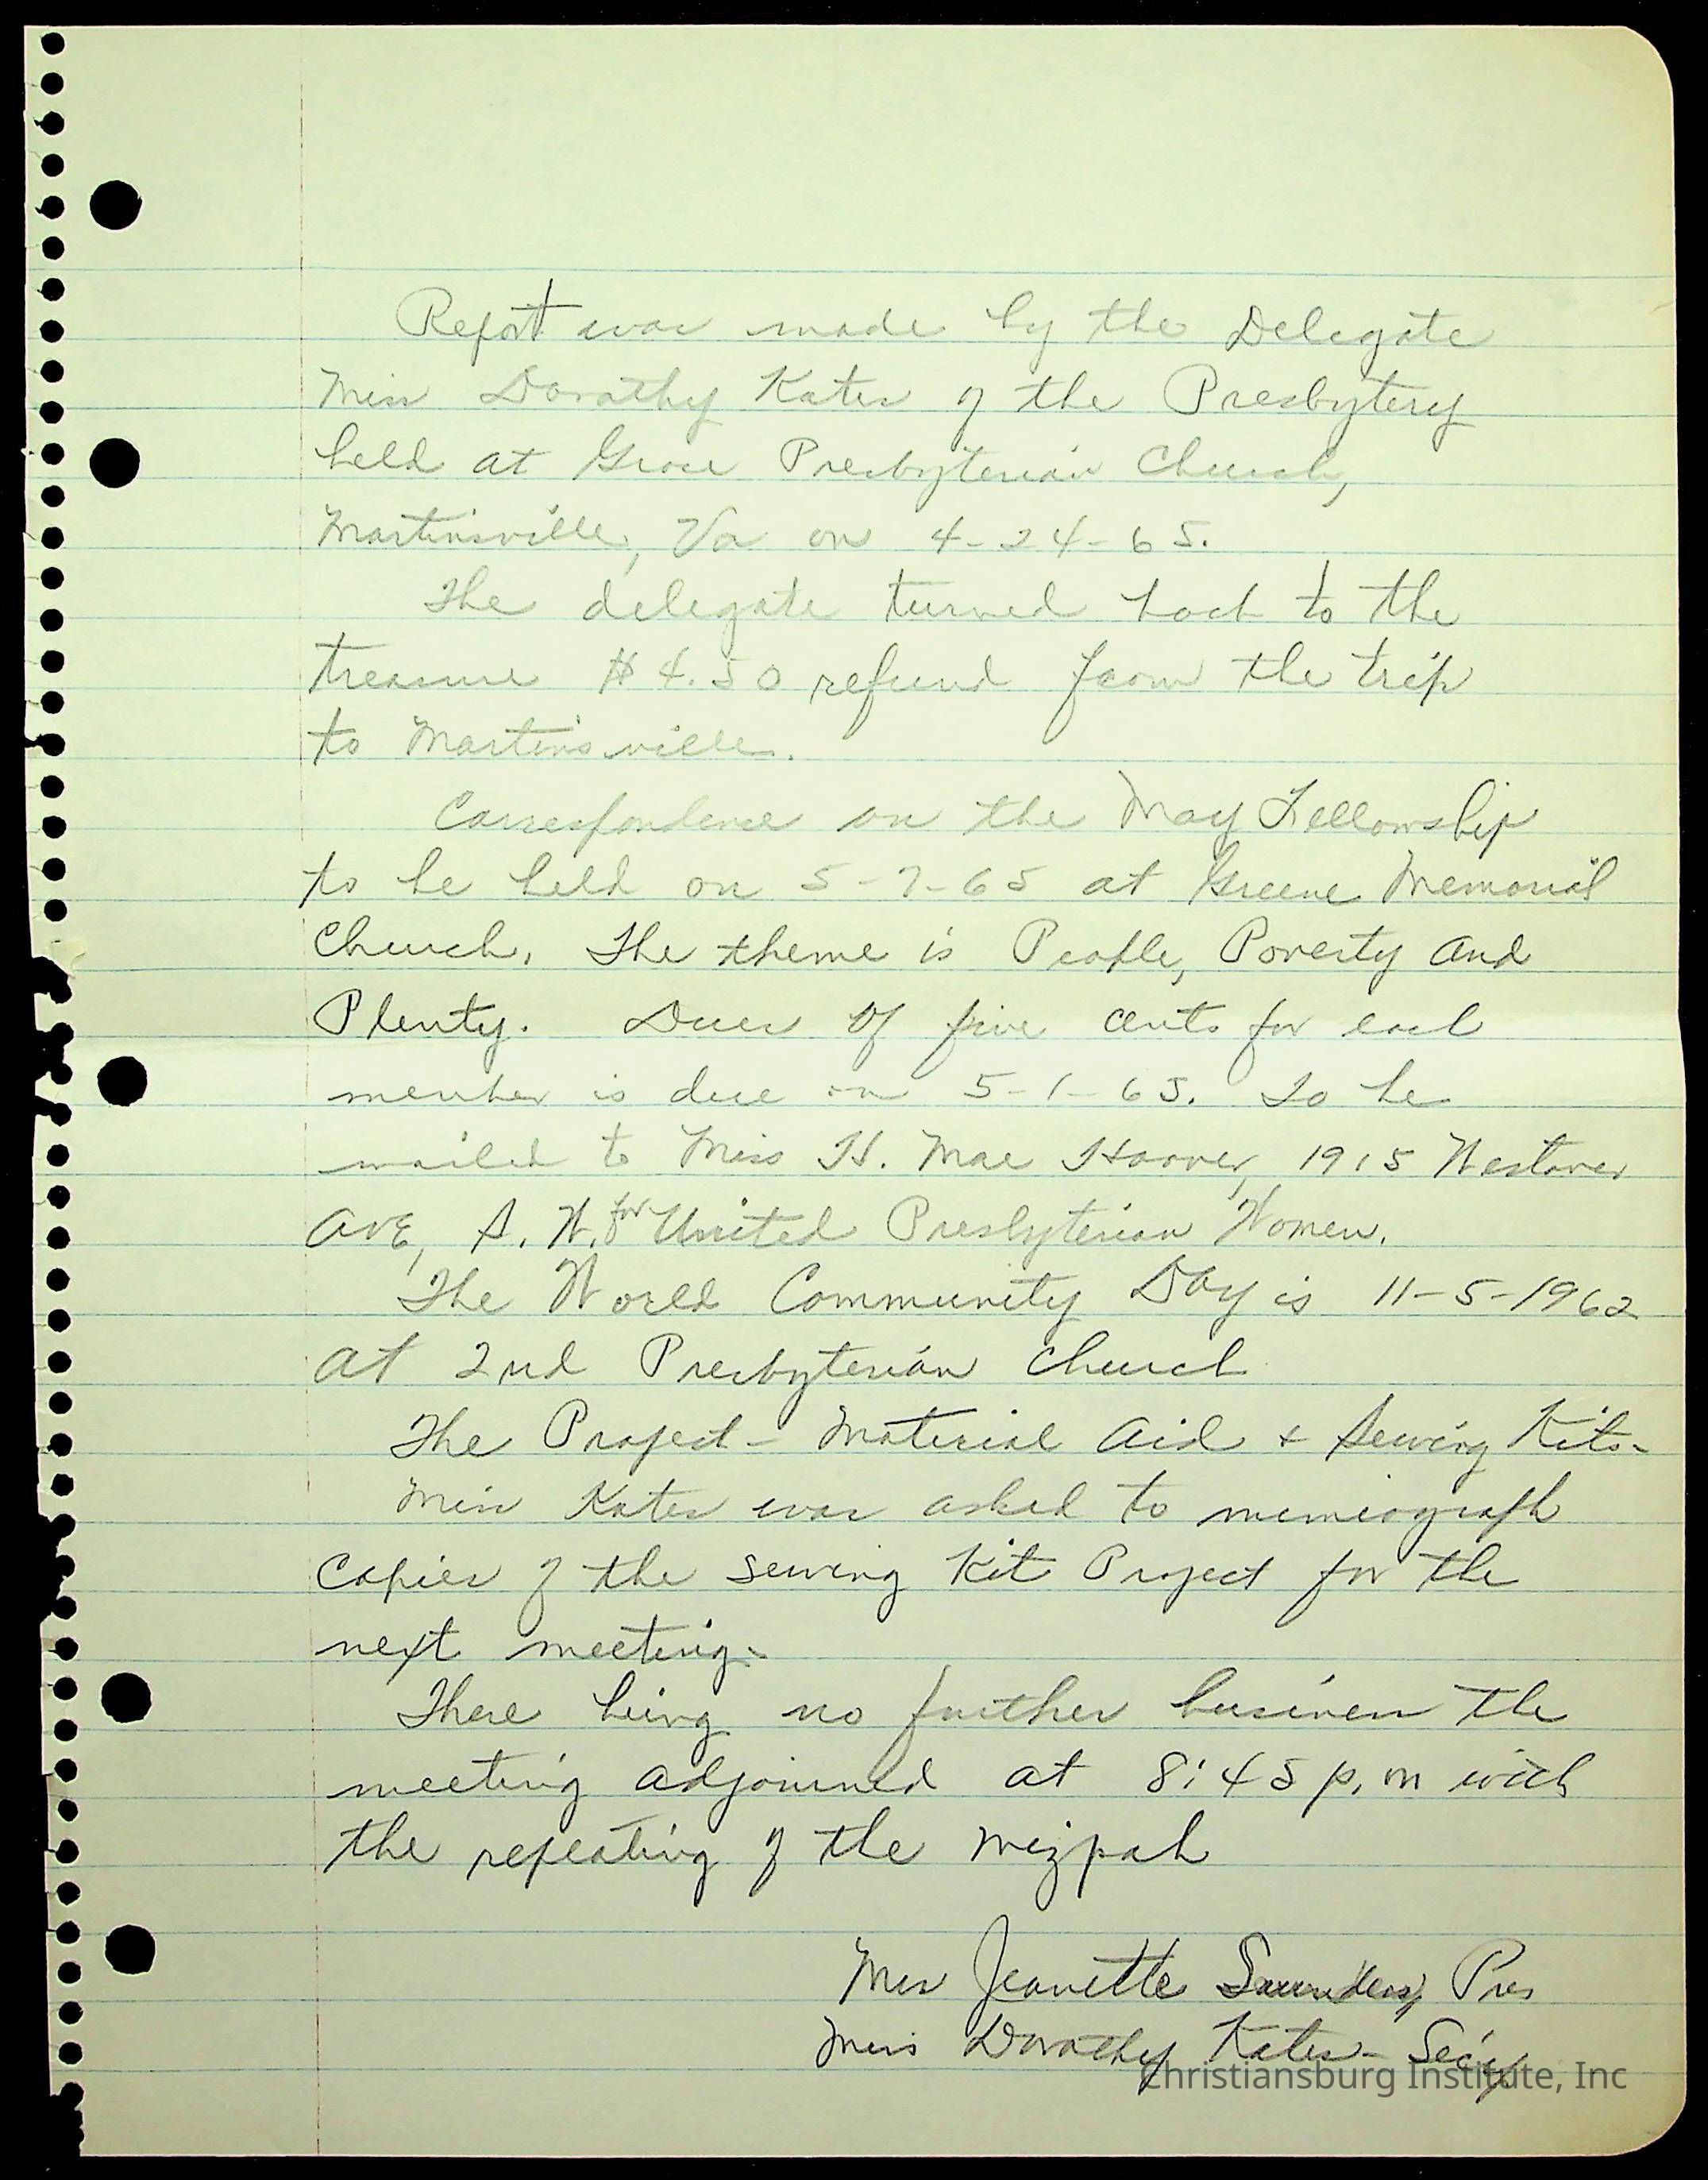 Report was made by the Delegate
Miss Dorothy Kates of the Presbytery
held at Grace Presbyterian Church,
Martinsville, Va on 4-24-65.
The delegate turned back to the
treasure $4.50 refund from the trip
to Martinsville.
Correspondence on the May Fellowship
to be held on 5-7-65 at Greene Memorial
Church. The theme is People, Poverty and
Plenty. Dues of five cents for each
member is due on 5-1-65. To be
mailed to Miss H. Mae Hoover, 1915 Westover
Ave, S.W. for United Presbyterian Women.
The World Community Day is 11-5-1962
at 2nd Presbyterian Church
The Project - Material Aid & Sewing Kits-
Miss Kates was asked to memiograph
Copies of the sewing Kit Project for the
next meeting-
There being no further business the
meeting adjourned at 8:45 p.m with
the repeating of the mizpah
Mrs Jeanette Saunders, Pres
Miss Dorothy Kates - Sec'y
Christiansburg Institute, Inc